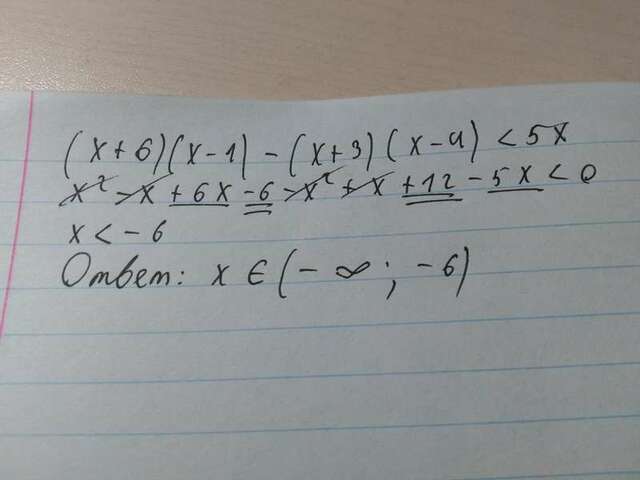 (x+6)(x-1)-(x+3)(x-4)<5x
x²-x+6x-6-x²+x+12-5x<0
x<-6
Ответ: x∈(-∞;-6)